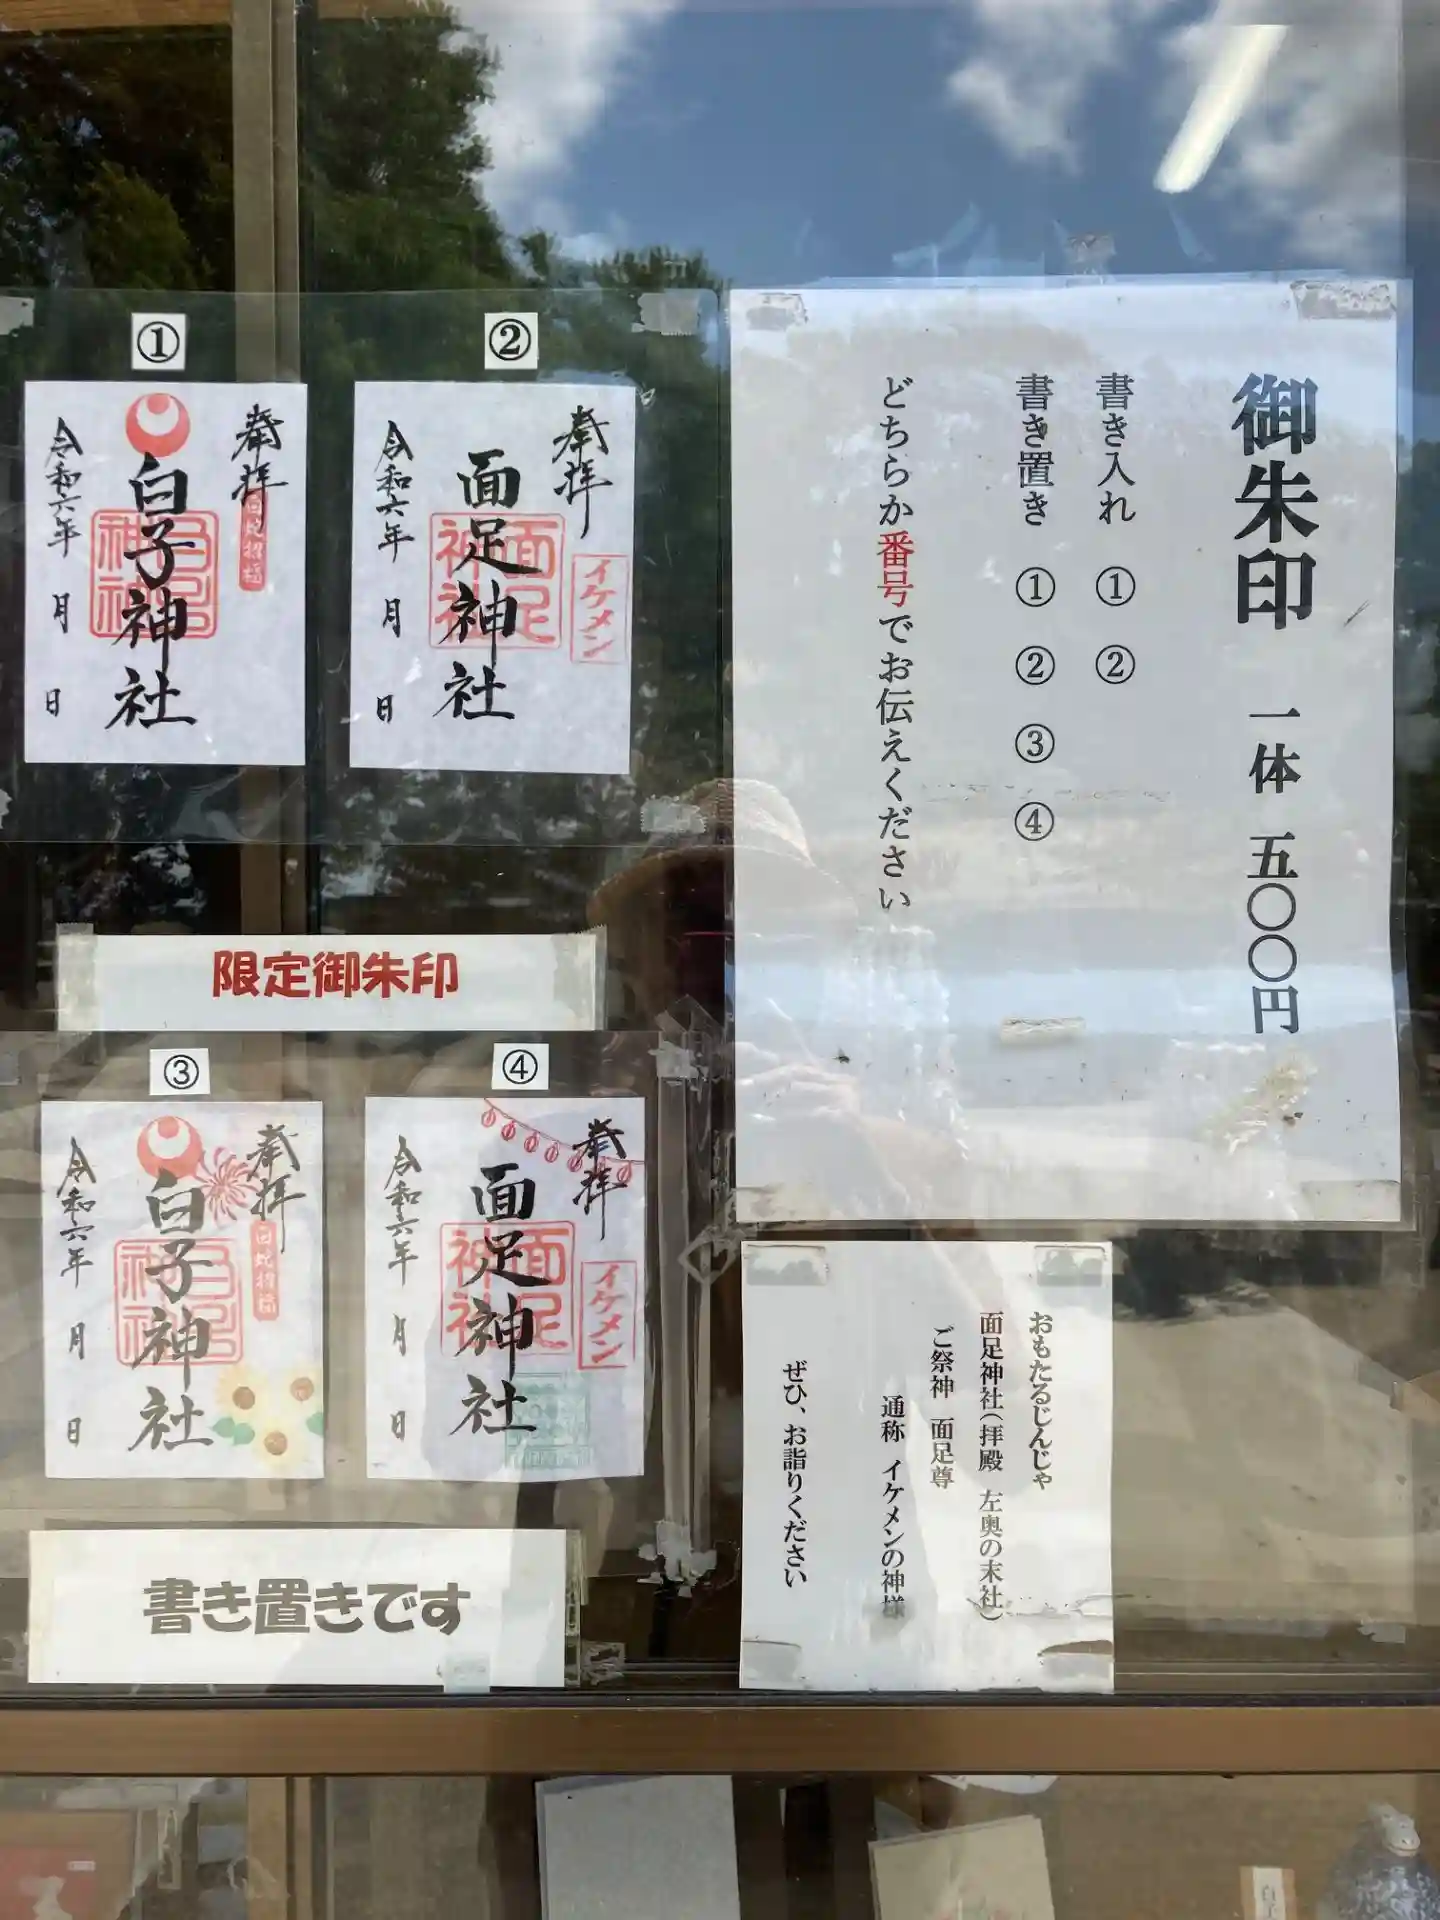 ①
奉拝
白蛇招福
白子神社
令和六年 月 日
②
奉拝
イケメン
面足神社
面足神社
令和六年 月 日
御朱印 一体 五〇〇円
書き入れ ① ②
書き置き ① ② ③ ④
どちらか番号でお伝えください
限定御朱印
③
奉拝
白蛇招福
白子神社
令和六年 月 日
④
奉拝
イケメン
面足神社
面足神社
令和六年 月 日
書き置きです
おもたるじんじゃ
面足神社(拝殿 左奥の末社)
ご祭神 面足尊
通称 イケメンの神様
ぜひ、お詣りください